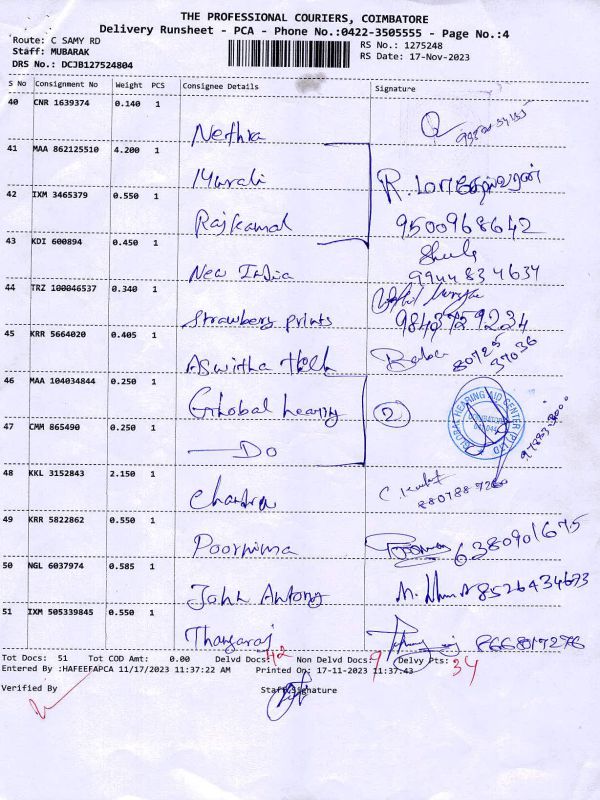 THE PROFESSIONAL COURIERS, COIMBATORE
Delivery Runsheet - PCA - Phone No.:0422-3505555 - Page No.:4
Route: C SAMY RD
Staff: MUBARAK
DRS No.: DCJB127524804
RS No.: 1275248
RS Date: 17-Nov-2023
S No Consignment No Weight PCS Consignee Details Signature
40 CNR 1639374 0.140 1
Nethra
41 MAA 862125510 4.200 1
Murali
42 IXM 3465379 0.550 1
Rajkamal 9500968642
43 KDI 600894 0.450 1
New India 9944834634
44 TRZ 100046537 0.340 1
Strawbery prints
45 KRR 5664020 0.405 1
Aswitha Baba 80725 37036
46 MAA 104034844 0.250 1
Grhobal hearing 2
GLOBAL HEARING AID CENTER (P) LTD
47 CMM 865490 0.250 1
Do
48 KKL 3152843 2.150 1
Chandra
49 KRR 5822862 0.550 1
Poornima 6380901675
50 NGL 6037974 0.585 1
John Antony 8526434673
51 IXM 505339845 0.550 1
Thangaraj
Tot Docs: 51 Tot COD Amt: 0.00 Delvd Docs: 42 Non Delvd Docs: 9 Delvy Pts: 34
Entered By :HAFEEFAPCA 11/17/2023 11:37:22 AM Printed On: 17-11-2023 11:37:43
Verified By Staff Signature